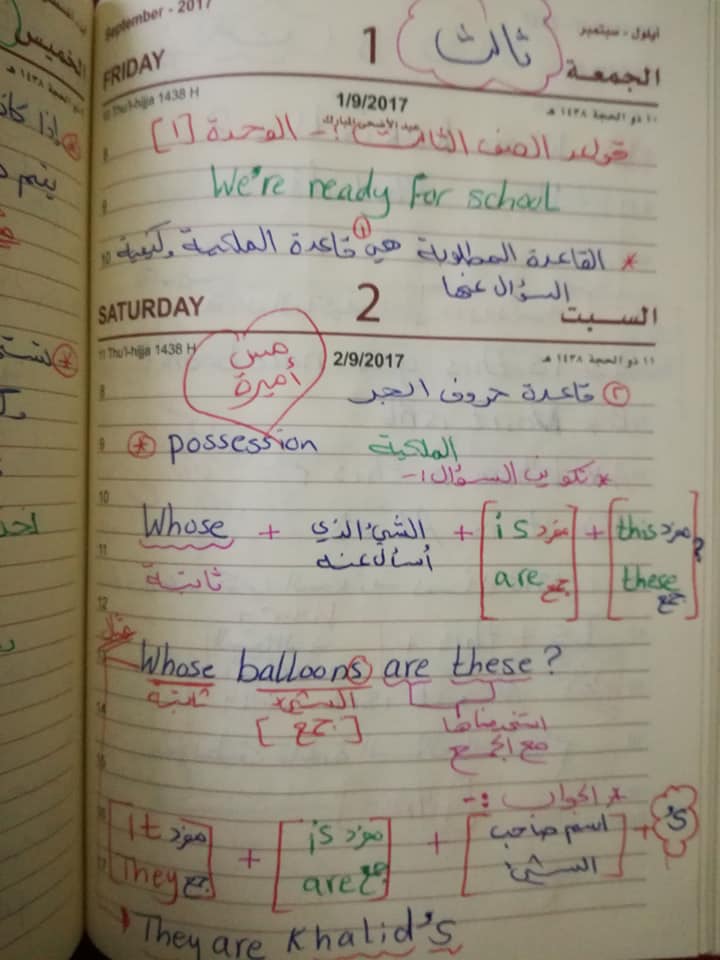 September - 2017
أيلول - سبتمبر
FRIDAY 1 ثالث الجمعة
10 Thu'l-hijja 1438 H 1/9/2017 ١٠ ذو الحجة ١٤٣٨ هـ
عيد الأضحى المبارك
قواعد الصف الثالث :- الوحدة [١]
We're ready for school
* القاعدة المطلوبة هي ① قاعدة الملكية وكيفية
السؤال عنها
SATURDAY 2 السبت
11 Thu'l-hijja 1438 H 2/9/2017 ١١ ذو الحجة ١٤٣٨ هـ
مس
أميرة
② قاعدة حروف الجر
* possession الملكية
* تكوين السؤال :-
Whose + الشيء الذي + [is مفرد] + [this مفرد] ?
ثابتة أسأل عنه are جمع these جمع
مثال
Whose balloons are these?
ثابتة الشيء
[جمع]
استخدمناها
مع الجمع
* الجواب :-
[It مفرد] + [is مفرد] + [اسم صاحب] + 's
They جمع are جمع الشيء
They are Khalid's
الخميس